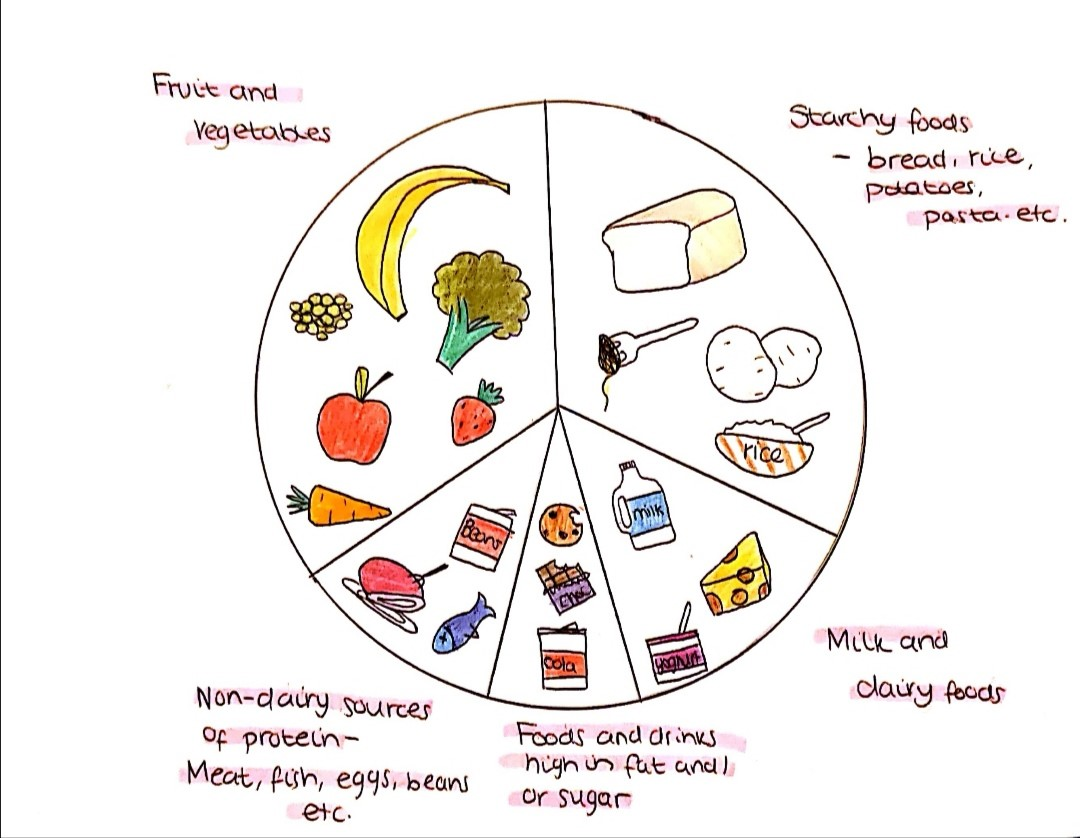 Fruit and
Vegetables
Starchy foods
- bread, rice,
potatoes,
pasta. etc.
rice
milk
Beans
Choc
Cola
yoghurt
Milk and
dairy foods
Non-dairy sources
of protein-
Meat, fish, eggs, beans
etc.
Foods and drinks
high in fat and/
or sugar